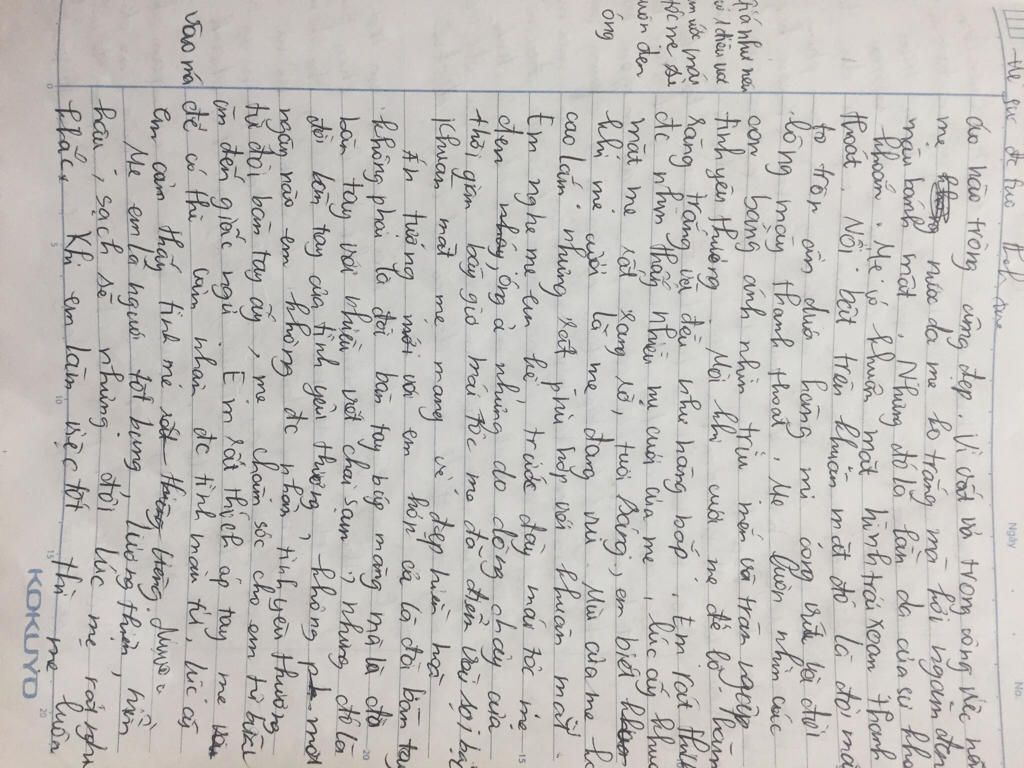 Ngày
No.
áo hào trông cũng đẹp. Vì vất vả trong công việc nên
mẹ nước da mẹ ko trắng mà hơi ngăm đen
mặn bánh mật. Nhưng đó là làn da của sự khỏ
khoắn. Mẹ có khuôn mặt hình trái xoan thanh
thoát. Nổi bật trên khuôn mặt đó là đôi mắ
to tròn ẩn dưới hàng mi cong và đôi
lông mày thanh thoát. Mẹ luôn nhìn các
con bằng ánh nhìn trìu mến và tràn ngập
tình yêu thương. Mỗi khi cười mẹ để lộ hàm
răng trắng và đều như hàng bắp. Em rất thíc
đc nhìn thấy nhiều nụ cười của mẹ, lúc ấy khuô
mặt mẹ rất rạng rỡ, tươi sáng, em biết
khi mẹ cười là mẹ đang vui. Mũi của mẹ k
cao lắm nhưng rất phù hợp với khuôn mặt.
Em nghe mẹ em kể trước đây mái tóc mẹ
đen óng ả nhưng do dòng chảy của
thời gian bây giờ mái tóc mẹ đã điểm vài sợi bạ
Khuôn mặt mẹ mang vẻ đẹp hiền hoà
giá như nếu
có 1 điều ước
em ước mái
tóc mẹ sẽ
luôn đen
óng
Ấn tượng mới với em hơn cả là đôi bàn tay
không phải là đôi bàn tay búp măng mà là đô
bàn tay với nhiều vết chai sạm, nhưng đó là
đôi bàn tay của tình yêu thương. không một
ngày nào em không đc nhận tình yêu thương
từ đôi bàn tay ấy, mẹ chăm sóc cho em từ bữa
ăn đến giấc ngủ. Em rất thích áp tay mẹ
vào má
để có thể cảm nhận đc tình mẫu tử, lúc đó
em cảm thấy tình mẹ
Mẹ em là người tốt bụng, lương thiện, hiền
hậu, sạch sẽ nhưng đôi lúc mẹ rất nghiê
khắc. Khi em làm việc tốt thì mẹ luôn
KOKUYO